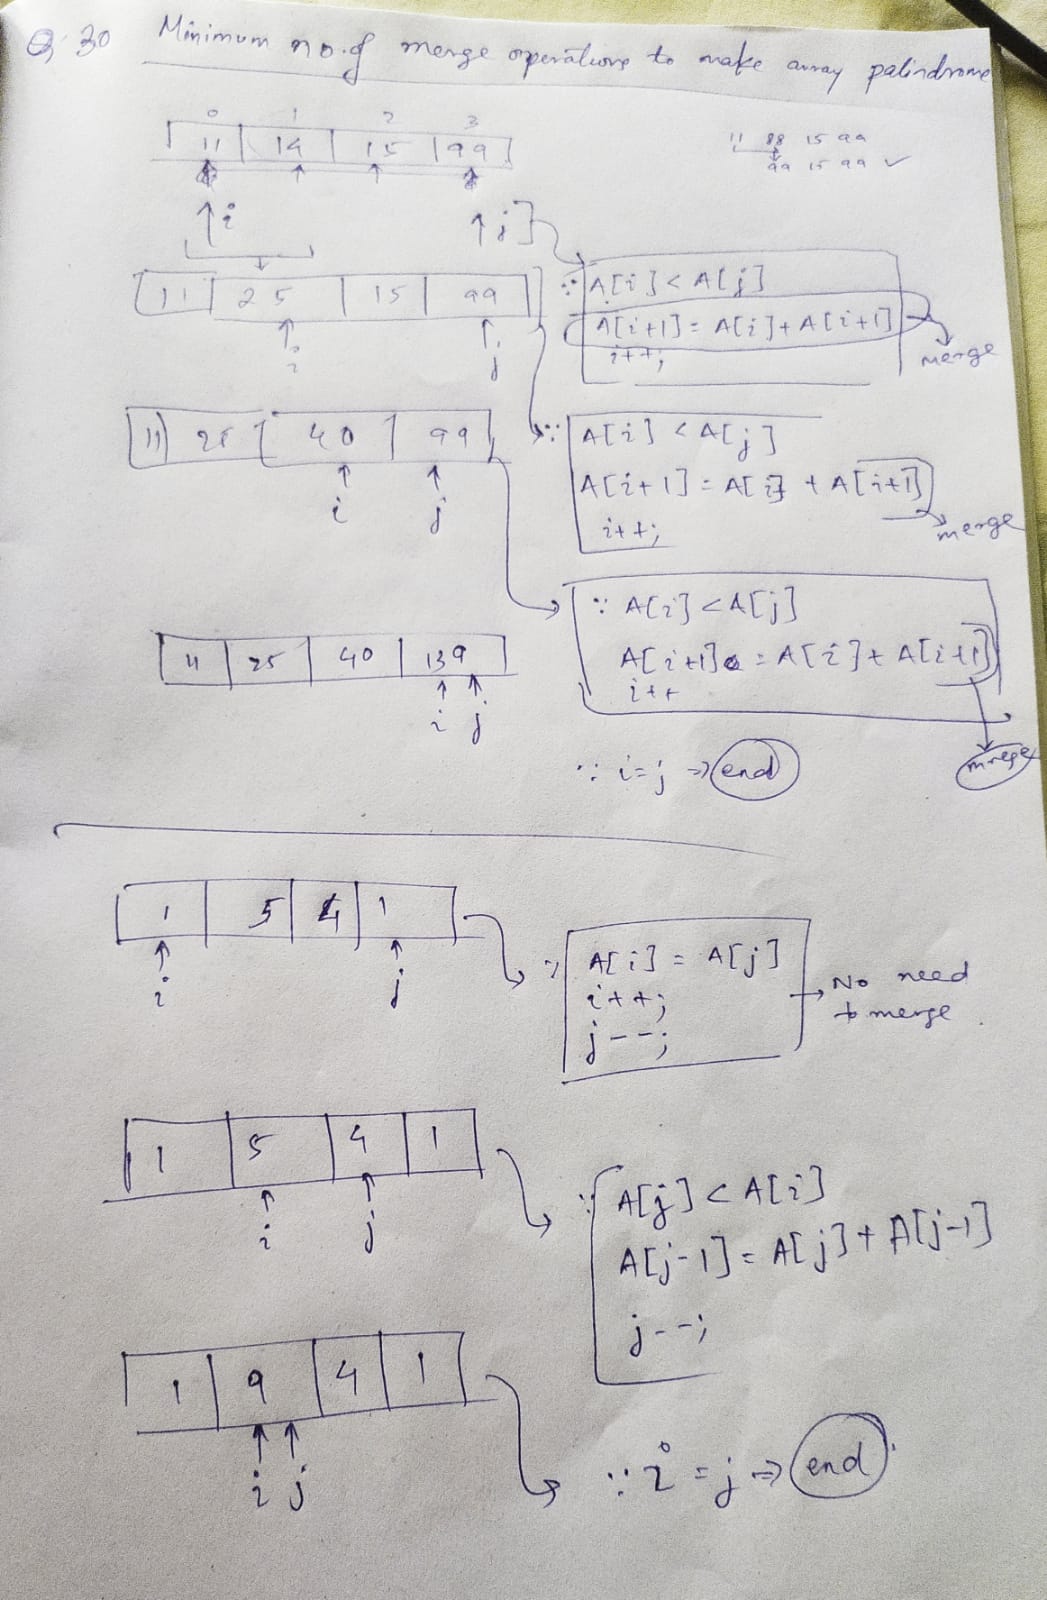 Q. 30 Minimum no. of merge operations to make array palindrome
0 1 2 3
11 14 15 99
11 88 15 99
99 15 99 ✓
i j
∵ A[i] < A[j]
11 25 15 99
A[i+1] = A[i] + A[i+1]
i++;
merge
i j
11 25 40 99
∵ A[i] < A[j]
A[i+1] = A[i] + A[i+1]
i j
i++;
merge
∵ A[i] < A[j]
11 25 40 139
A[i+1] = A[i] + A[i+1]
i++
i j
∵ i=j ⇒ end
1 5 4 1
A[i] = A[j]
i++;
j--;
No need
to merge.
i j
1 5 4 1
∵ A[j] < A[i]
A[j-1] = A[j] + A[j-1]
j--;
i j
1 9 4 1
i j
∵ i = j ⇒ end